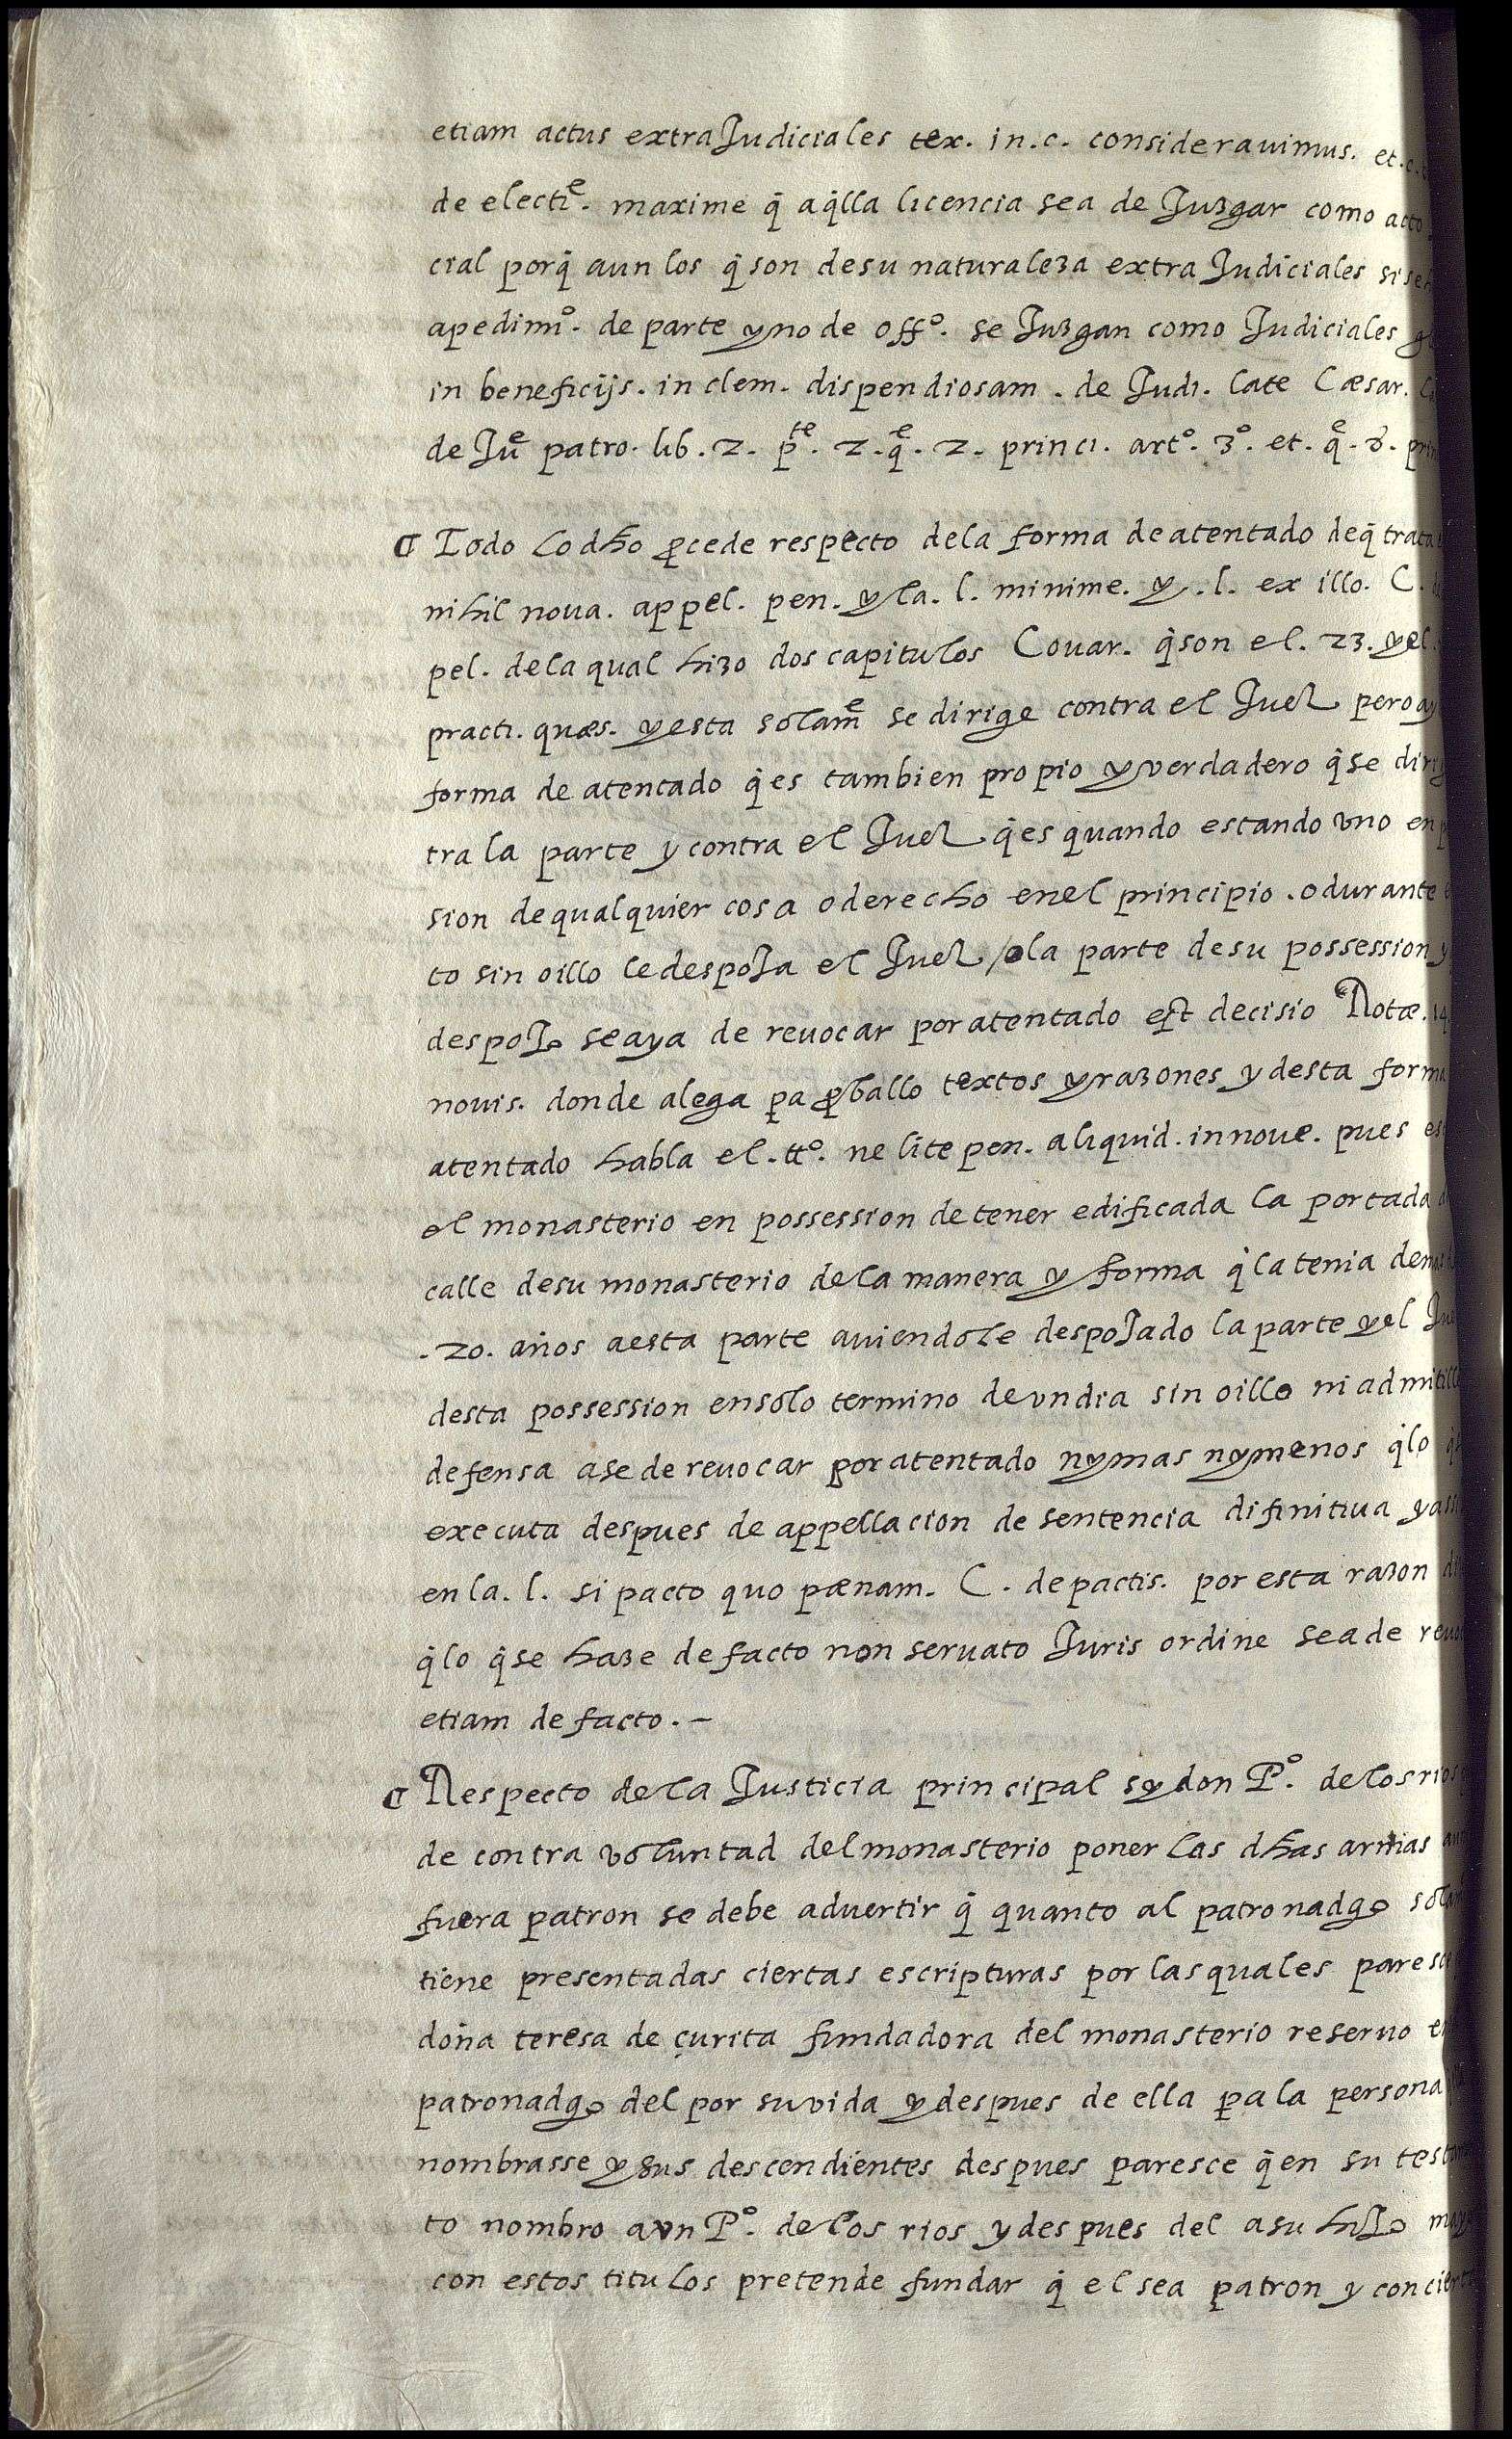 etiam actus extraJudiciales tex. in.c. consideravimus. et.c.
de electi^e. maxime q̃ aq̃lla licencia sea de Juzgar como acto
cial porq̃ aun los q̃ son desu naturaleza extra Judiciales si se
apedim^o. de parte y no de off^o. se Juzgan como Judiciales
in beneficijs. in clem. dispendiosam. de Judi. late Cæsar.
de Ju^e patro. lib. 2. p^te. 2. q^e. 2. princi. art^o. 3^o. et. q^e. 8.
¶ Todo lo dho p̱cede respecto dela forma de atentado deq̃ trata
nihil noua. appel. pen. y la. l. minime. y. l. ex illo. C.
pel. dela qual hizo dos capitulos Couar. q̃ son el. 23. y el.
practi. quæs. y esta solam^e se dirige contra el Juez pero ay
forma de atentado q̃ es tambien propio y verdadero q̃ se dirig
tra la parte y contra el Juez q̃ es quando estando vno en
sion de qualquier cosa o derecho enel principio. o durante
to sin oillo le despoJa el Juez / o la parte desu possession y
despoJo se aya de reuocar por atentado est decisio Rotæ. 14
nouis. donde alega pa p̱ballo textos y razones y desta forma
atentado habla el. tt^o. ne lite pen. aliquid. innoue. pues es
el monasterio en possession de tener edificada la portada
calle desu monasterio dela manera y forma q̃ la tenia de
.20. años aesta parte auiendole despoJado la parte y el Jue
desta possession en solo termino de vn dia sin oille ni admitille
defensa a se de reuocar por atentado ny mas ny menos q̃ lo
executa despues de appellacion de sentencia difinitiua y
en la. l. si pacto quo pænam. C. de pactis. por esta razon
q̃ lo q̃ se haze de facto non seruato Juris ordine sea de
etiam de facto. –
¶ Respecto dela Justicia principal sy don P^o. delos rios
de contra voluntad del monasterio poner las dhas armas
fuera patron se debe aduertir q̃ quanto al patronadgo
tiene presentadas ciertas escripturas por las quales
doña teresa de çurita fundadora del monasterio reseruo
patronadgo del por su vida y despues de ella pa la persona
nombrasse y sus descendientes despues paresce q̃ en su
to nombro a vn P^o. delos rios y despues del a su hiJo
con estos titulos pretende fundar q̃ el sea patron y